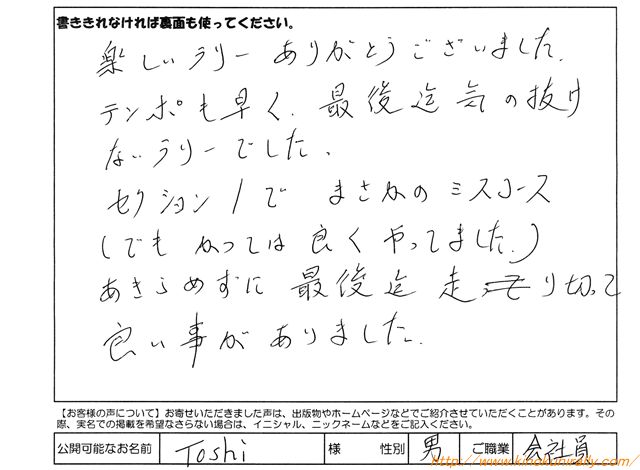 書ききれなければ裏面も使ってください。
楽しいラリー ありがとうございました。
テンポも早く、最後迄気の抜け
ないラリーでした。
セクション1で まさかのミスコース
(でも かつては 良く やってました。)
あきらめずに 最後迄 走り切って
良い事がありました。
【お客様の声について】お寄せいただきました声は、出版物やホームページなどでご紹介させていただくことがあります。その
際、実名での掲載を希望なさらない場合は、イニシャル、ニックネームなどをご記入ください。
公開可能なお名前 Toshi 様 性別 男 ご職業 会社員
http://www.kinokunirally.com/